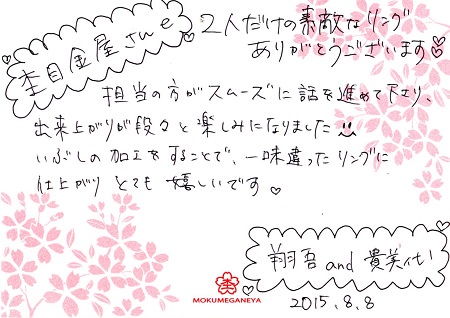 杢目金屋さんへ
2人だけの素敵なリング
ありがとうございます♡
担当の方がスムーズに話を進めて下さり、
出来上がりが段々と楽しみになりました
いぶしの加工をすることで、一味違ったリングに
仕上がり とても嬉しいです。♡
翔吾 and 貴美代
MOKUMEGANEYA
2015.8.8